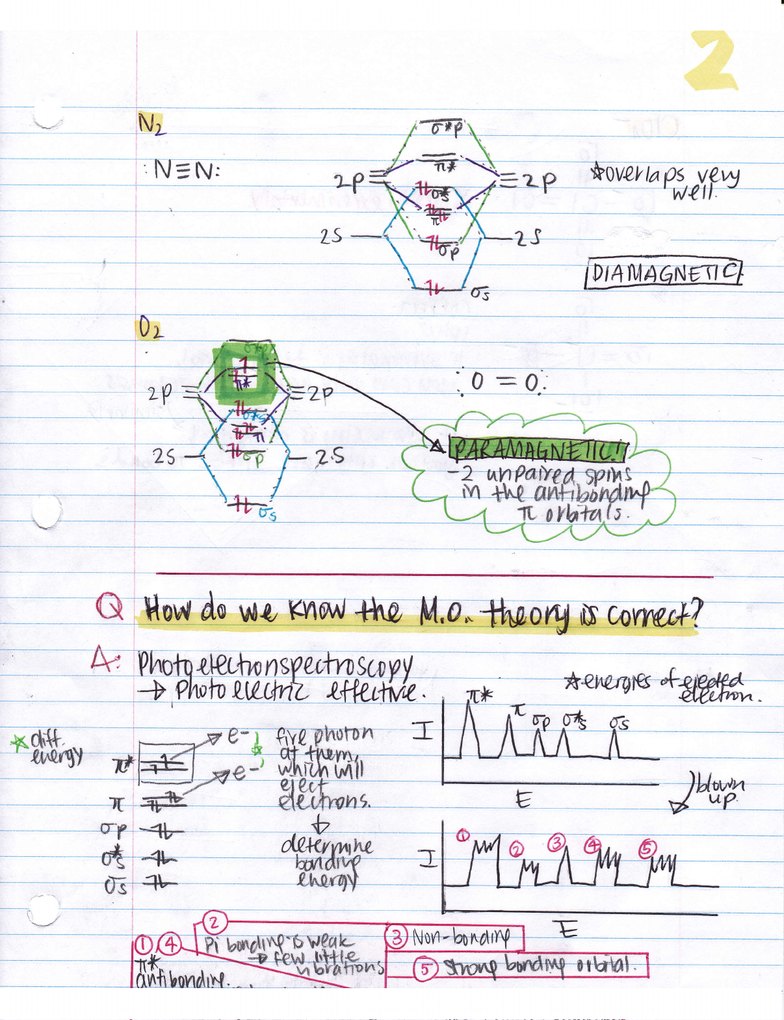 2
N₂
:N≡N:
σ*p
π*
2p
2p
σ*s
π
2s
2s
σp
σs
*overlaps very
well.
DIAMAGNETIC
O₂
π*
2p
2p
σ*s
π
2s
2s
σp
σs
:O = O:
PARAMAGNETIC!
-2 unpaired spins
in the antibonding
π orbitals.
Q How do we know the M.O. theory is correct?
A: Photoelectronspectroscopy
→ Photoelectric effective.
*energies of ejected
electron.
* diff.
energy
π* e-
π e-
σp
σ*s
σs
fire photon
at them,
which will
eject
electrons.
↓
determine
bonding
energy
I
π* π σp σ*s σs
E
blown
up
I
① ② ③ ④ ⑤
E
① ④
π*
antibonding.
②
Pi bonding is weak
→ few little
vibrations
③ Non-bonding
⑤ Strong bonding orbital.